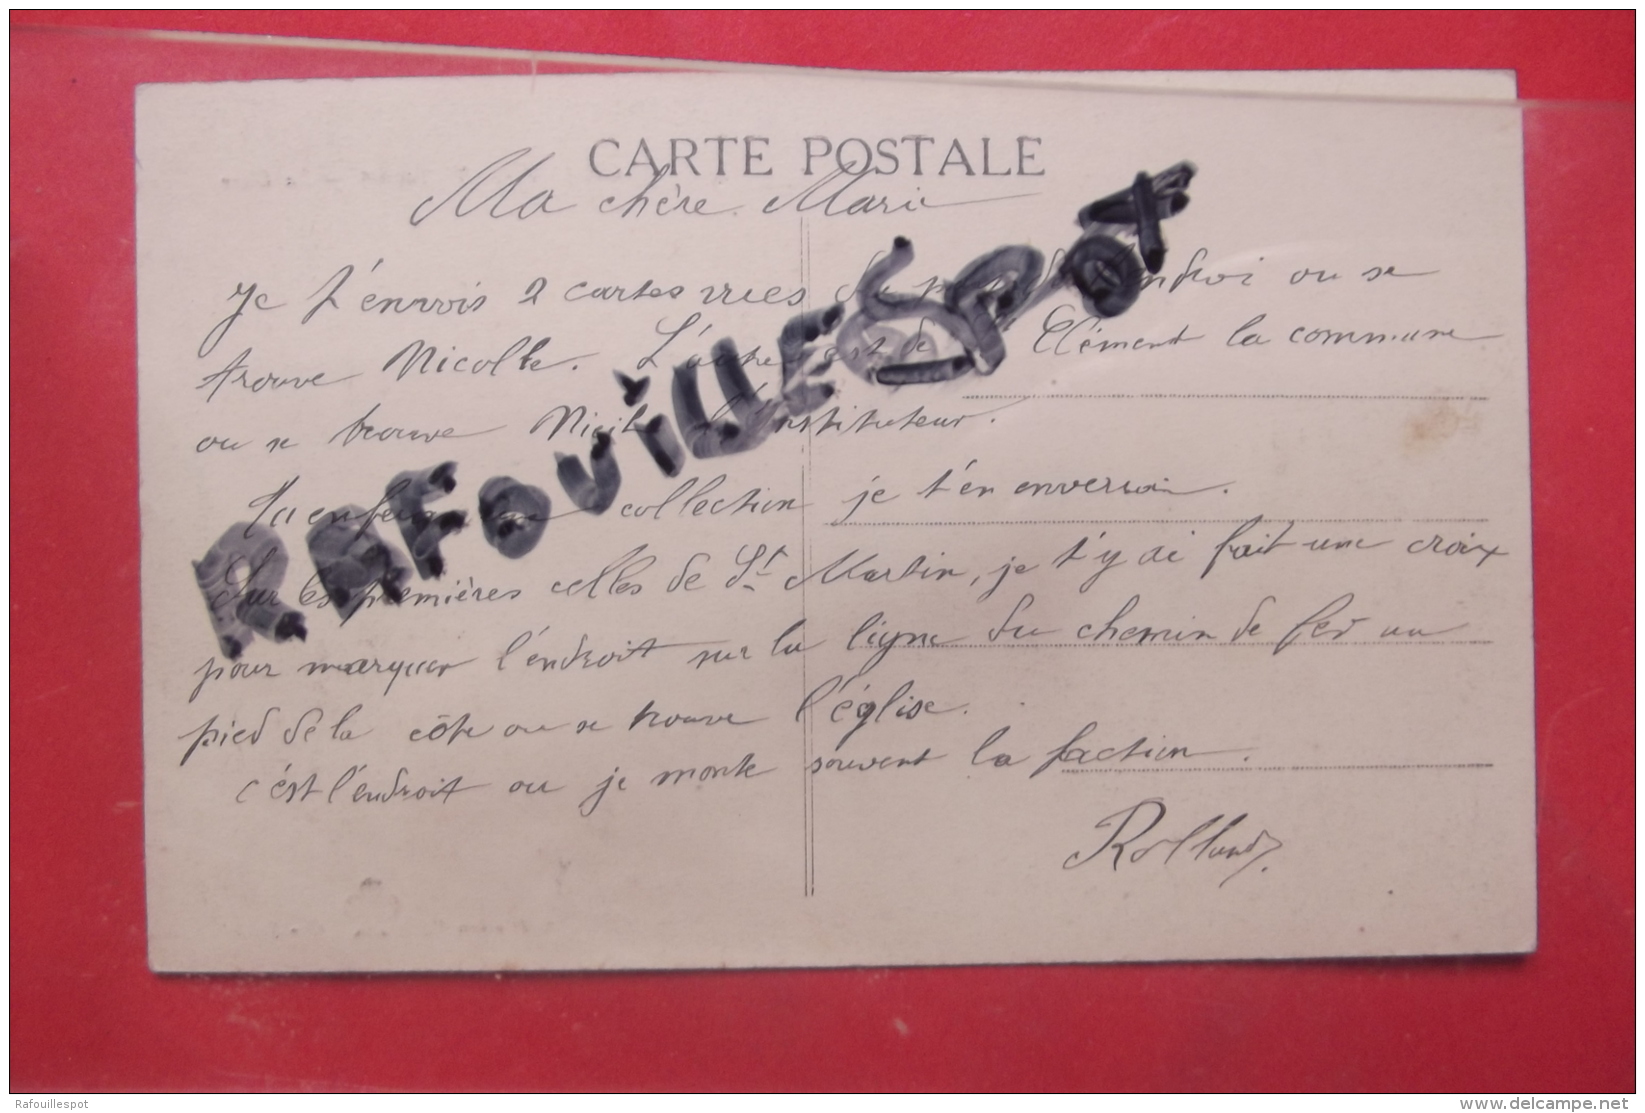 CARTE POSTALE
Ma chère Marie
Je t'envois 2 cartes vues du endroi ou se
trouve Nicolle. L'autre est de St Clément la commune
ou se trouve l'instituteur.
collection je t'en enverrai.
Sur les premières celles de St Martin, je t'y ai fait une croix
pour marquer l'endroit sur la ligne du chemin de fer au
pied de la côte ou se trouve l'église.
c'est l'endroit ou je monte souvent la faction.
Rolland
RAFOUILLESPOT
Rafouillespot
delcampe.net